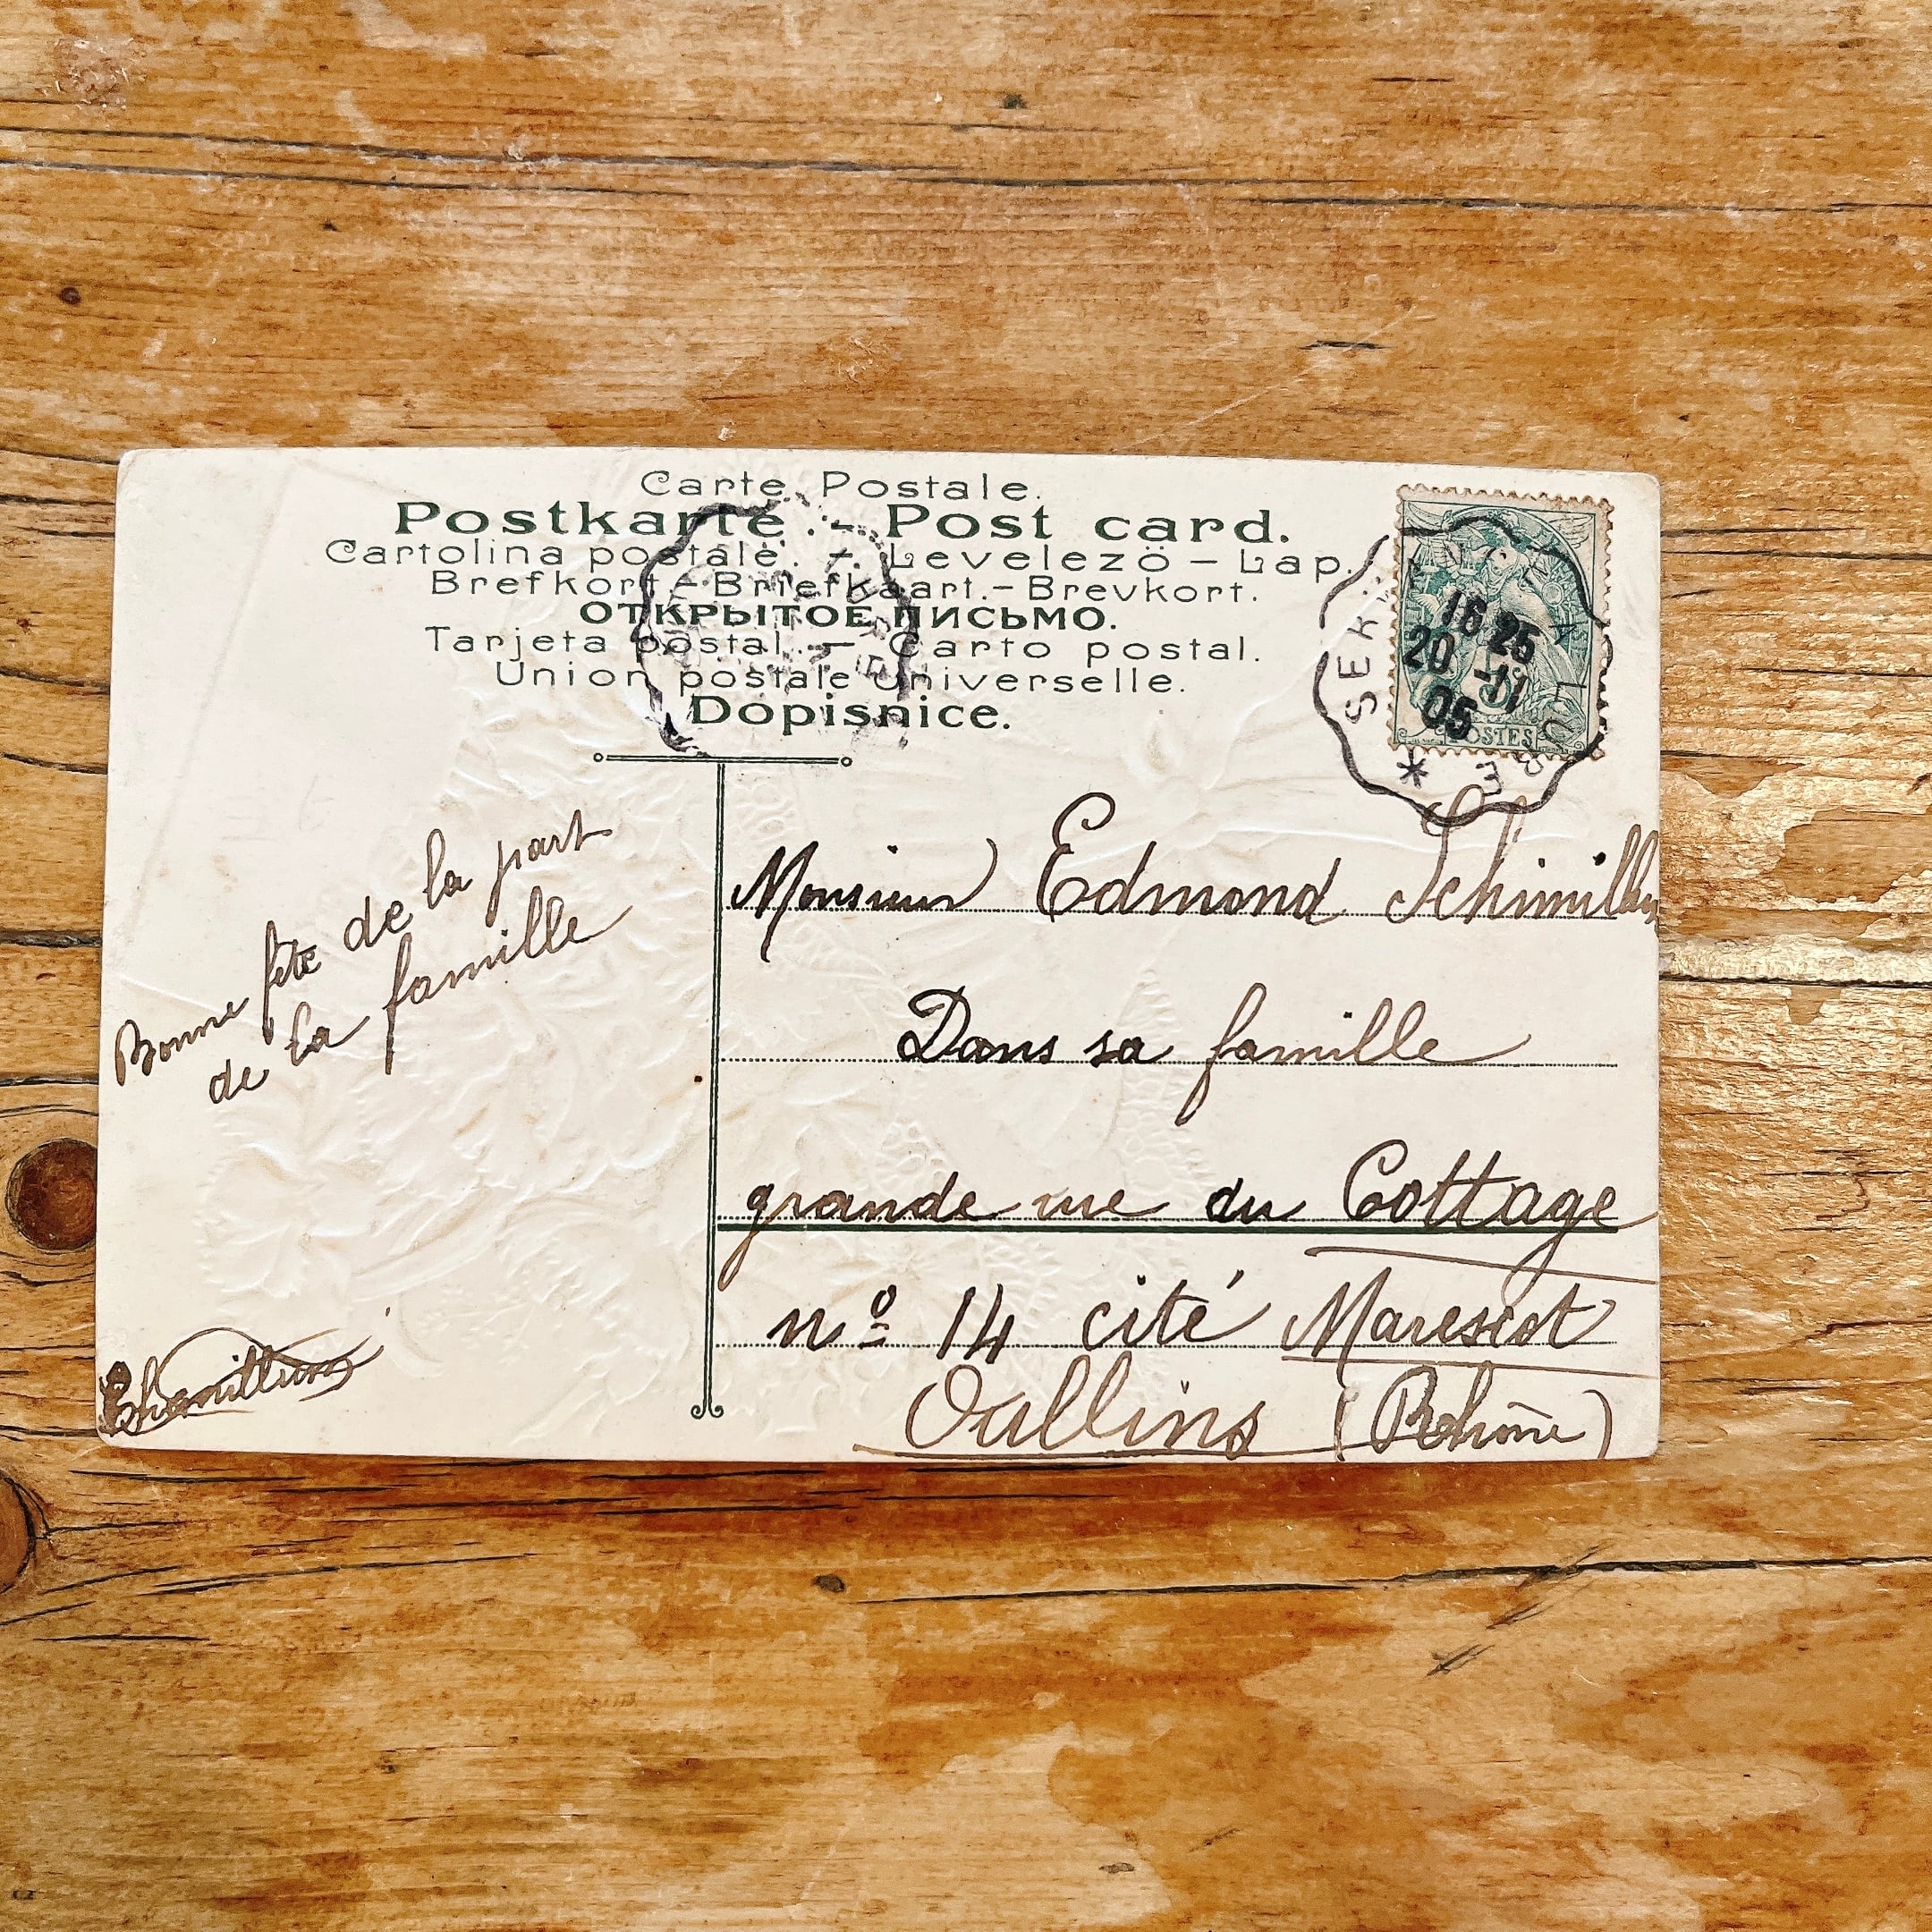 Carte Postale.
Postkarte. - Post card.
Cartolina postale. - Levelezö - Lap.
Brefkort - Briefkaart. - Brevkort.
ОТКРЫТОЕ ПИСЬМО.
Tarjeta postal. - Carto postal.
Union postale universelle.
Dopisnice.
16 25
20 -11
05
POSTES
Bonne fête de la part
de la famille
Monsieur Edmond
Dans sa famille
grande rue du Cottage
nº 14 cité Marescot
Oullins (Rhône)